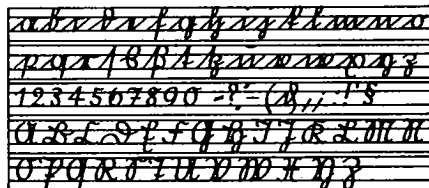 a b c d e f g h i j k l m n o
p q r ſ s ß t tz u v w x y z
1 2 3 4 5 6 7 8 9 0 - ? = ( & , ; . ! ' §
A B C D E F G H I J K L M N
O P Q R S T U V W X Y Z